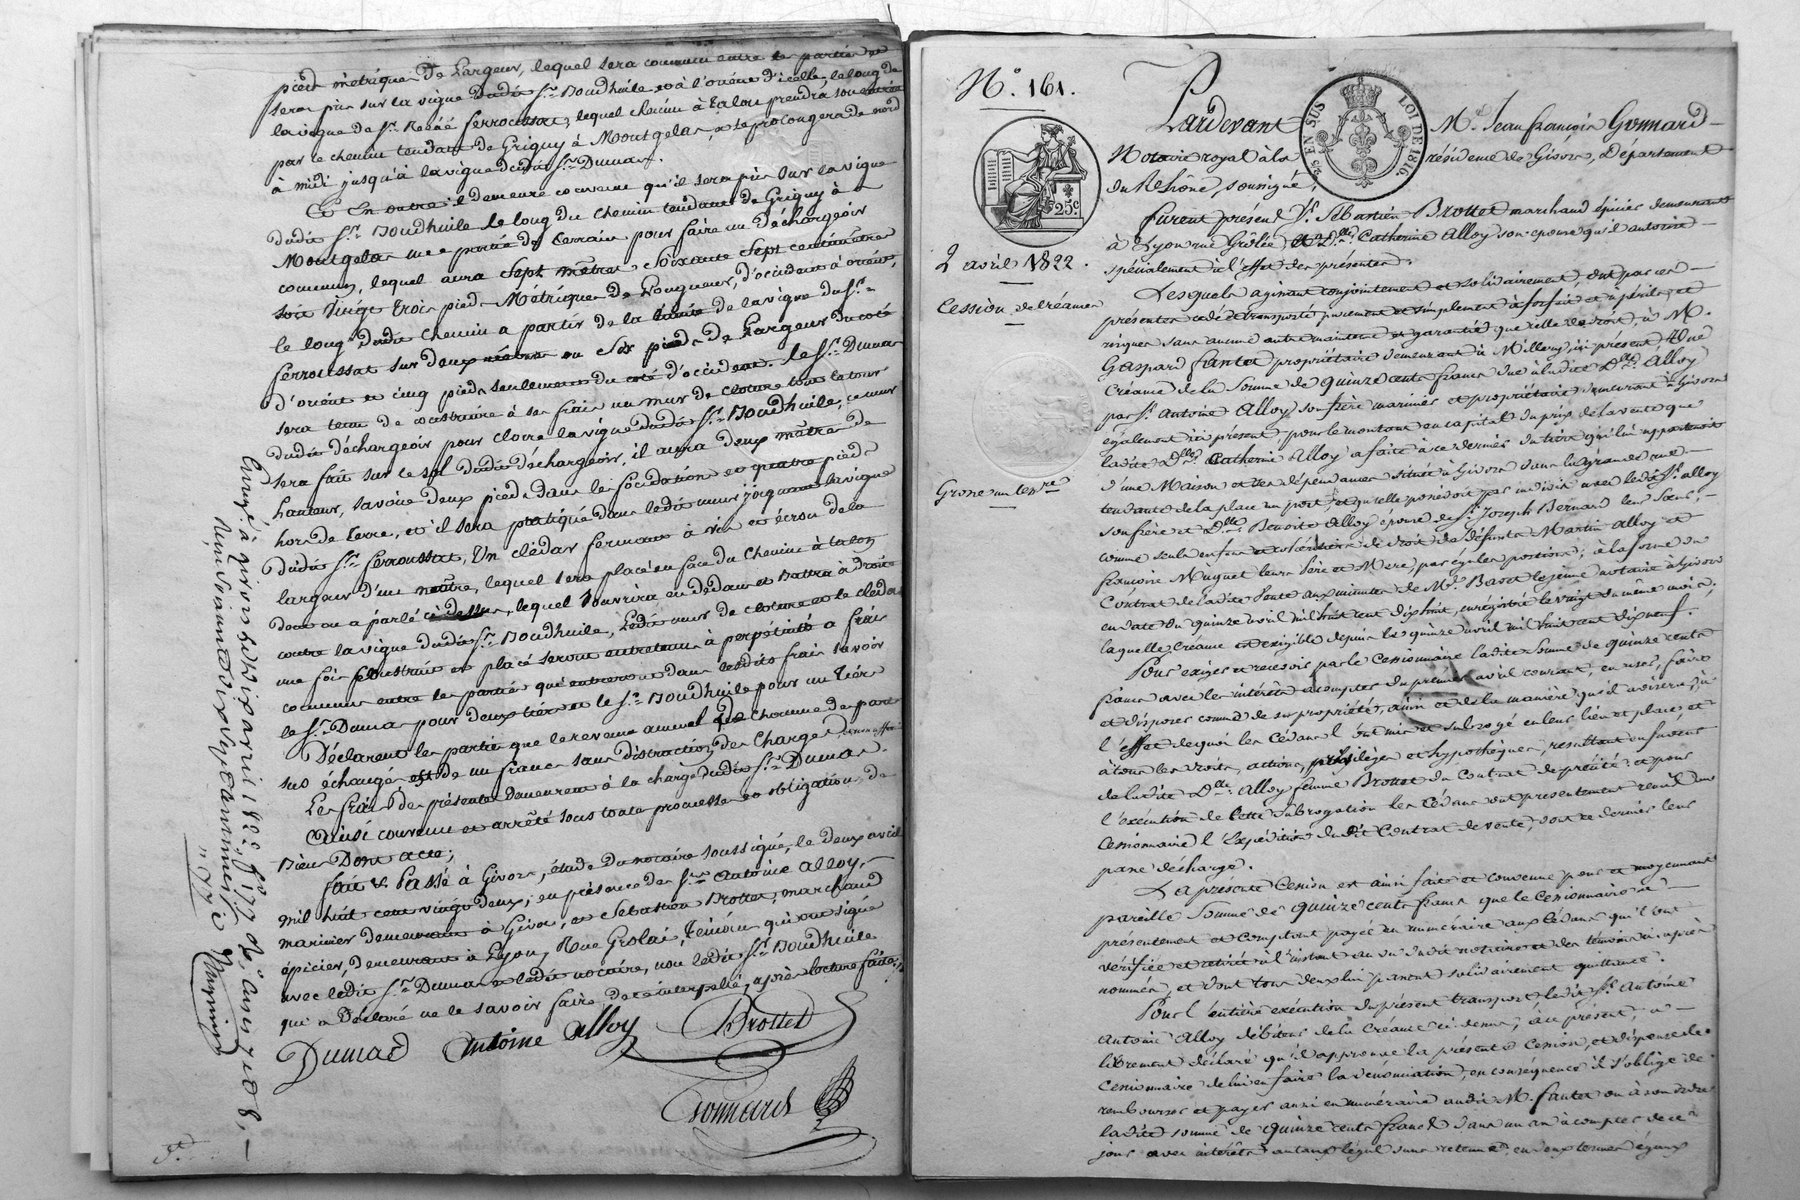 pieds métriques de Largeur, lequel sera commun entre les parties et
sera pris sur la vigne dudit Sr. Boudhuile et à l'orient d'icelle, le long de
la vigne de Sr. ferroussat, lequel chemin à talon prendra son entrée
par le chemin tendant de Grigny à Montgelas, et se prolongera de nord
à midi jusqu'à la vigne dudit Sr. Dumas.
En outre il demeure convenu qu'il sera pris sur la vigne
dudit Sr. Boudhuile le long du chemin tendant de Grigny à
Montgelas une partie de terrain pour faire un déchargeoir
commun, lequel aura Sept mètres Soixante Sept centimètres
soit Vingt trois pieds Métriques de Longueur, d'occident à orient,
le long dudit Chemin a partir de la de la vigne du Sr.
ferroussat sur deux mètres ou Six pieds de Largeur du coté
d'orient et cinq pieds seulement du coté d'occident. le Sr. Dumas
sera tenu de construire à ses frais un mur de cloture tout le tour
dudit déchargeoir pour clore la vigne dudit Sr. Boudhuile, ce mur
sera fait sur le sol dudit déchargeoir, il aura deux mètres de
hauteur, savoir deux pieds dans les fondations et quatre pieds
hors de terre, et il sera pratiqué dans ledit mur joignant la vigne
dudit Sr. ferroussat, Un clédar fermant à vis et écrou de la
largeur d'un mètre, lequel sera placé en face du Chemin à talon
dont on a parlé ci dessus, lequel s'ouvrira en dedans et battra à droite
contre la vigne dudit Sr. Boudhuile, Ledit mur de cloture et le clédar
une fois construit et placé seront entretenus à perpétuité a frais
communs entre les parties qui entreront dans lesdits frais savoir
le Sr. Dumas pour deux tiers et le Sr. Boudhuile pour un tiers
Déclarent les parties que le revenu annuel de chacune des parts
sus échangés est de un franc sans distraction des Charges
Les frais des présentes demeurent à la charge dudit Sr. Dumas.
Ainsi convenu et arrêté sous toute promesse et obligation de
Bien Dont acte;
fait & Passé à Givors, étude du notaire soussigné, le deux avril
mil huit cent vingt deux; en présence des Srs. Antoine Alloy,
marinier demeurant à Givors, et Sébastien Brottet, marchand
épicier, demeurant à Lyon, Rue Grolai, témoins qui ont signé
avec ledit Sr. Dumas et ledit notaire, non ledit Sr. Boudhuile
qui a Déclaré ne le savoir faire, de ce interpellé, après lecture faite.
Dumas Antoine Alloy Brottet
Gonnard
N.o 161.
25c.
2 avril 1822.
Cession de Créances
Grosse un term
Pardevant Me. Jean françois Gonnard
Notaire royal à la résidence de Givors, Département
du Rhône, soussigné,
EN SUS
LOI DE 1816.
furent présent Sr. Sébastien Brottet marchand épicier demeurant
à Lyon rue Grôlée et Dlle. Catherine Alloy son epouse qu'il autorise
spécialement à l'effet des présentes.
Lesquels agissant conjointement et solidairement, ont par ces
présentes cédé et transporté purement et simplement à forfait et à périls et
risques sans aucune autre maintenue et garantie que celle de droit, à M.
Gaspard fantet propriétaire demeurant à Millery, ici présent, Une
Créance de la Somme de quinze cents francs due à ladite Dlle. Alloy
par Sr. Antoine Alloy son frère marinier et propriétaire demeurant à Givors
également ici présent, pour le montant en capital du prix de la vente que
ladite Dlle. Catherine Alloy a faite à ce dernier du tiers qui lui appartenoit
d'une Maison et ses dépendances située à Givors dans la grande rue
tendante de la place au port, et qu'elle possédoit par indivis avec ledit Sr. alloy
son frère et Dlle. Benoite Alloy épouse de Sr. Joseph Bernard leur sœur,
comme seuls enfans et de droit des défunts Martin Alloy et
francoise Muguet leurs Père et Mere, par égales portions; à la forme du
Contrat de ladite Vente aux minutes de Me. Bazet le jeune notaire à Givors
en date du quinze avril mil huit cent dix huit, enrégistré le vingt du même mois,
laquelle Créance est exigible depuis le quinze avril mil huit cent dix neuf.
Pour exiger et recevoir par le Cessionnaire ladite Somme de quinze cents
francs avec les intérêts à compter du premier avril courant, en user, faire
et disposer comme de sa propriété, ainsi et de la manière qu'il avisera, à
l'effet de quoi les Cédans l'ont mis et subrogé en leur lieu et place, et
à tous les droits, actions, priviléges et hypothèques, resultant en faveur
de ladite Dlle. Alloy femme Brottet du Contrat de précité, et pour
l'exécution de Cette Subrogation les Cédans ont presentement remis au
Cessionnaire l'Expédition dudit Contrat de vente, dont ce dernier leur
passe décharge.
La présente Cession est ainsi faite et convenue pour et moyennant
pareille Somme de quinze cents francs que le Cessionnaire a
présentement et Comptant payée en numéraire aux Cédans qu'ils ont
vérifiée et retirée à l'instant au vu dudit notaire et des témoins ci après
nommés, et dont tous deux lui passent solidairement quittance.
Pour l'entière exécution du présent transport ledit Sr. Antoine
Antoine Alloy débiteur de la Créance ci dessus, à ce présent, a
librement déclaré qu'il approuve la présente Cession, et dispense le
Cessionnaire de lui en faire la dénonciation, en conséquence il s'oblige de
rembourser et payer aussi en numéraire audit M. fantet ou à son ordre
ladite somme de quinze cents francs dans un an à compter de ce
jour avec intérêts au taux légal sans retenue, en deux termes égaux